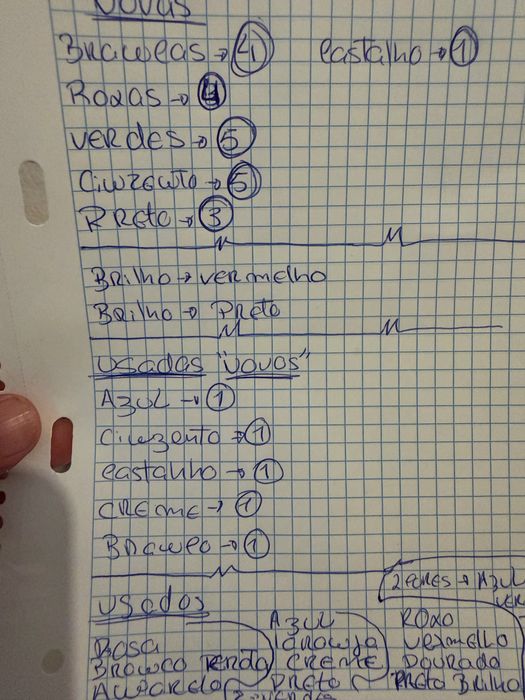 Novas
Brancas → 4 castalho → 1
Roxas → 4
verdes → 5
Cinzento → 5
Preto → 3
Brilho → vermelho
Brilho → Preto
usadas "novos"
Azul → 1
Cinzento → 1
castanho → 1
creme → 1
Branco → 1
2 cores → Azul
usados
Azul Roxo
Rosa Laranja vermelho
Branco renda Creme Dourado
Amarelo Preto Preto Brilho